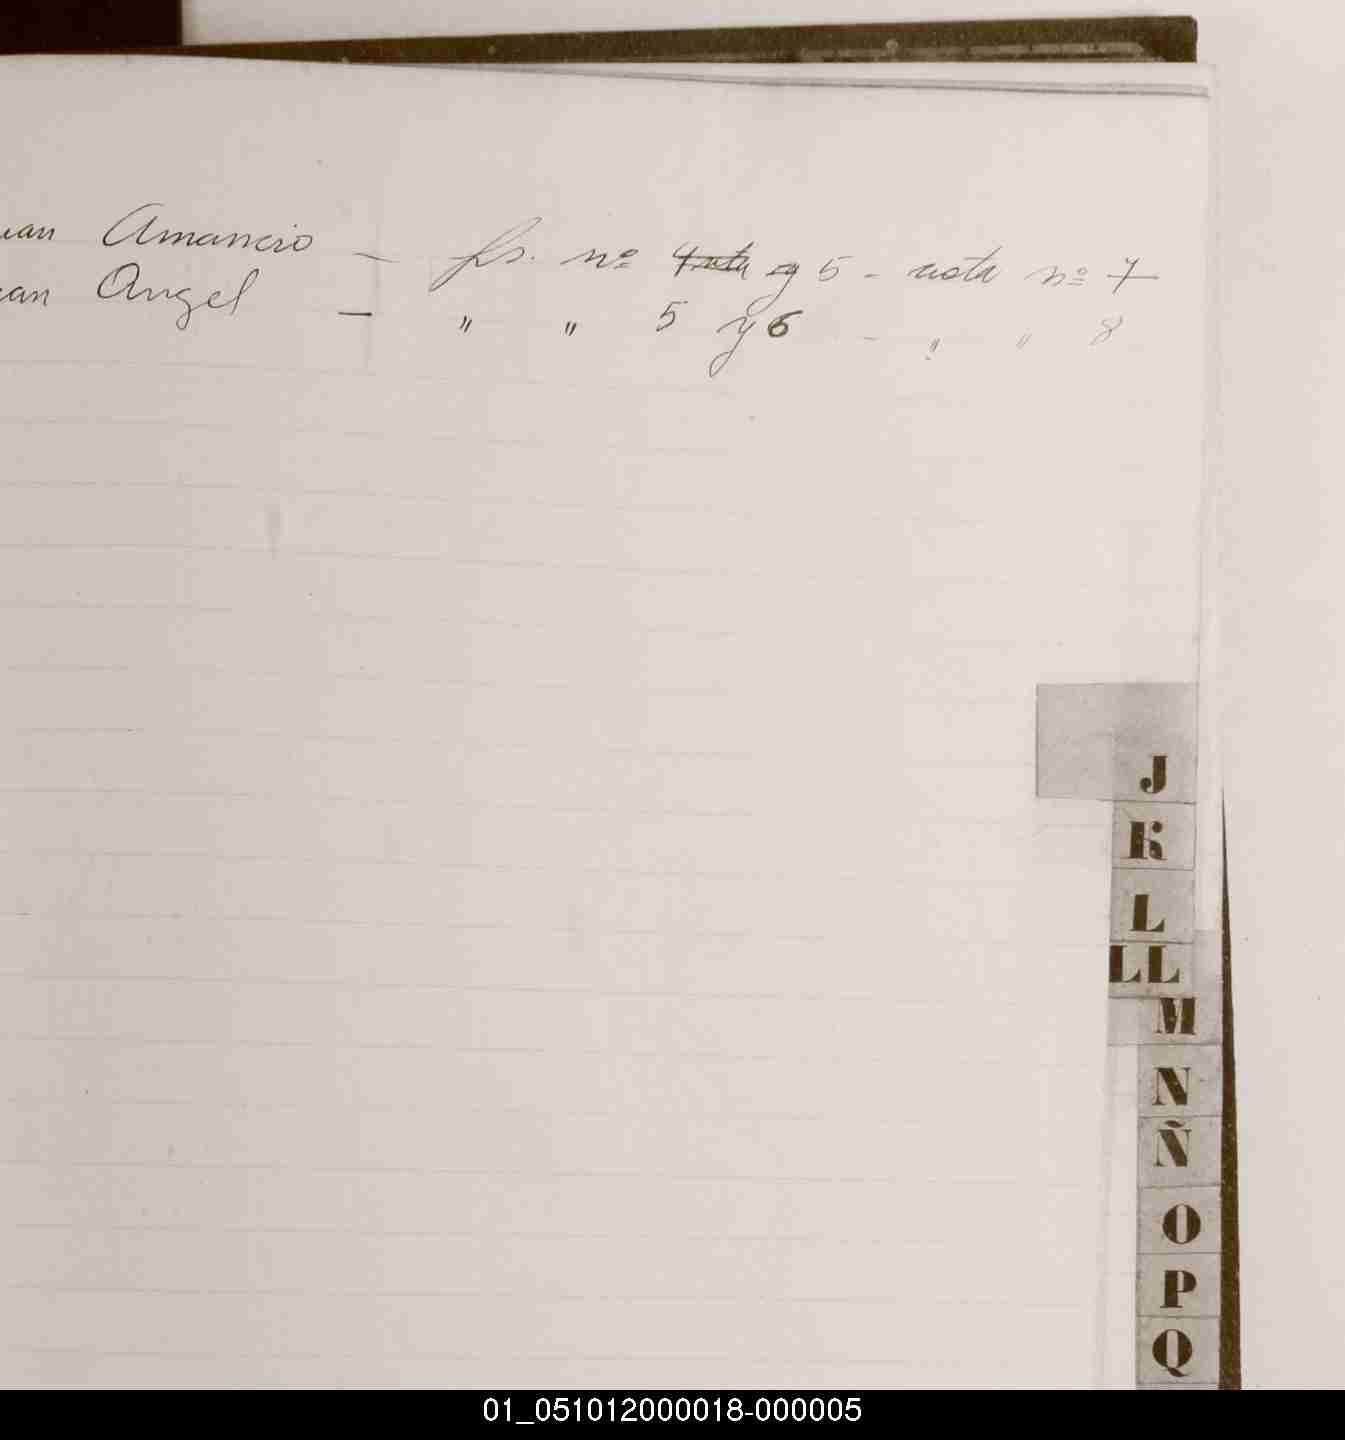 uan Amancio — fs. nº 4 y 5 - nota nº 7
uan Angel — " " 5 y 6 - " " 8
J
K
L
LL
M
N
Ñ
O
P
Q
01_051012000018-000005